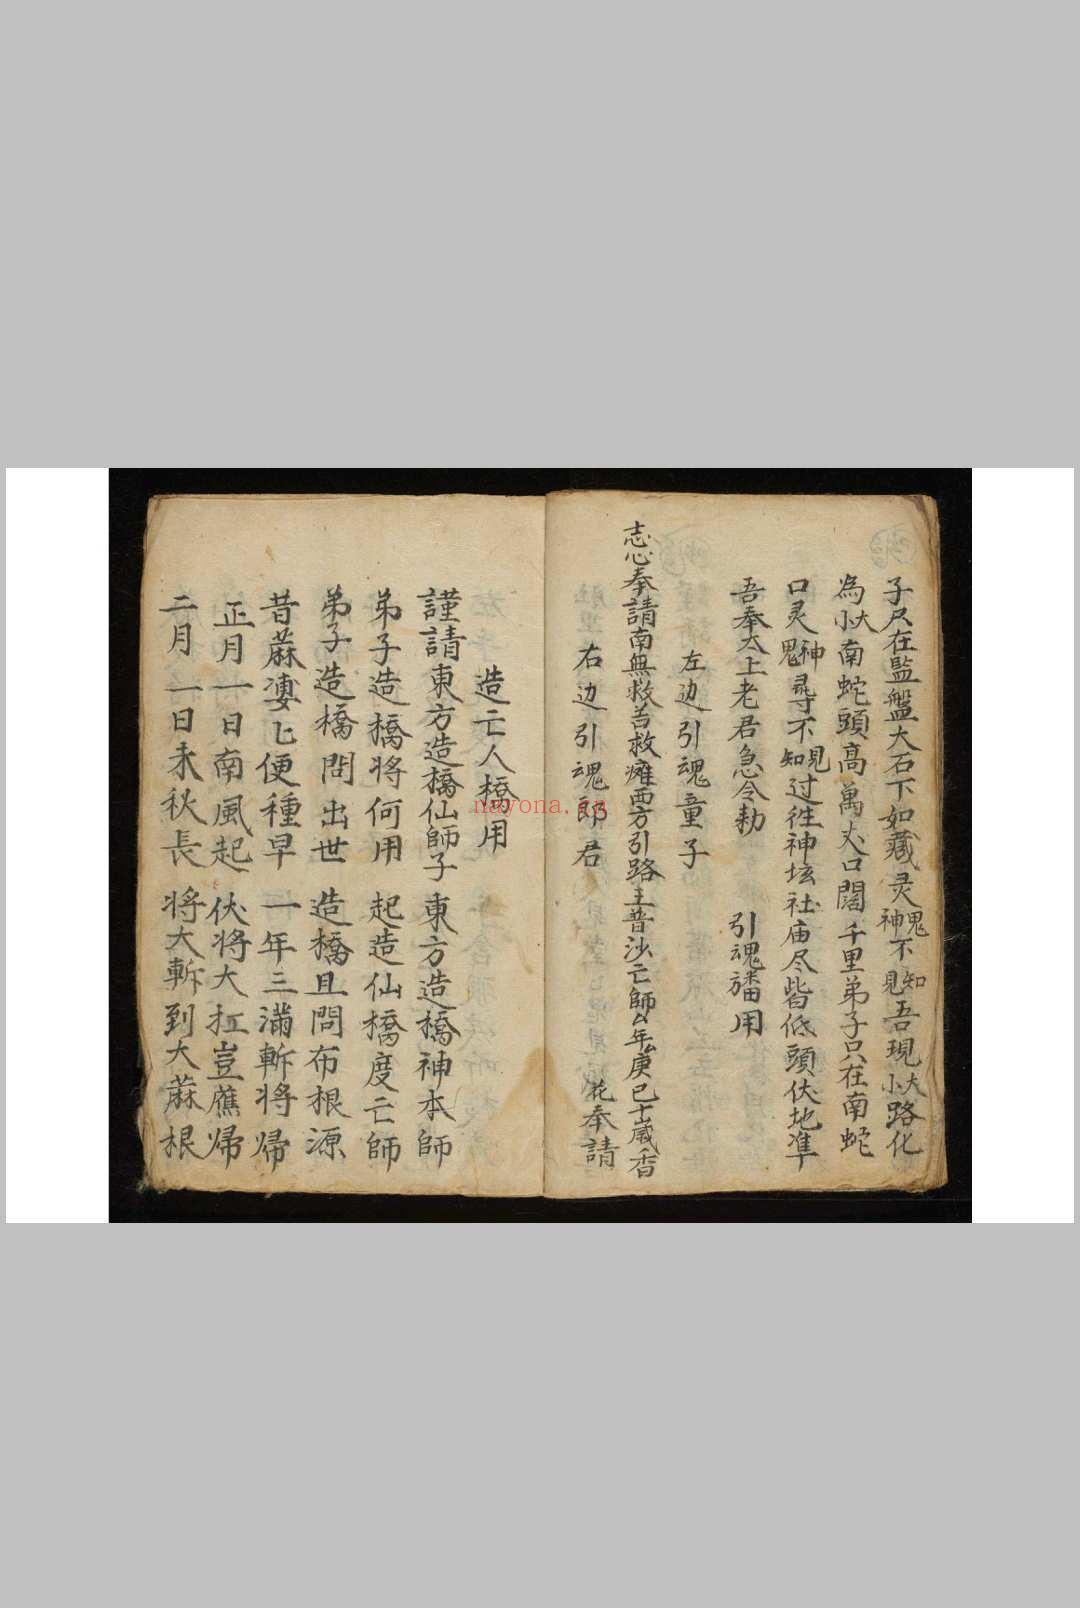 子尺在監盤大石下如藏灵神鬼不見知吾現小大路化
為小大南蛇頭高萬丈口闊千里弟子只在南蛇
口灵鬼神尋不知見过往神坛社庙尽皆低頭伏地準
吾奉太上老君急令勅 引魂旛用
左边引魂童子
志心奉請南無救苦救难西方引路王普沙亡師 年庚已 歲香
花奉請
右边引魂郎君
造亡人橋用
謹請東方造橋仙師子 東方造橋神本師
弟子造橋將何用 起造仙橋度亡師
弟子造橋問出世 造橋且問布根源
昔蔴 便種早 一年三滿斬將歸
正月一日南風起 伏將大扛豈應歸
二月一日未秋長 将大斬到大蔴根
nayona.cn